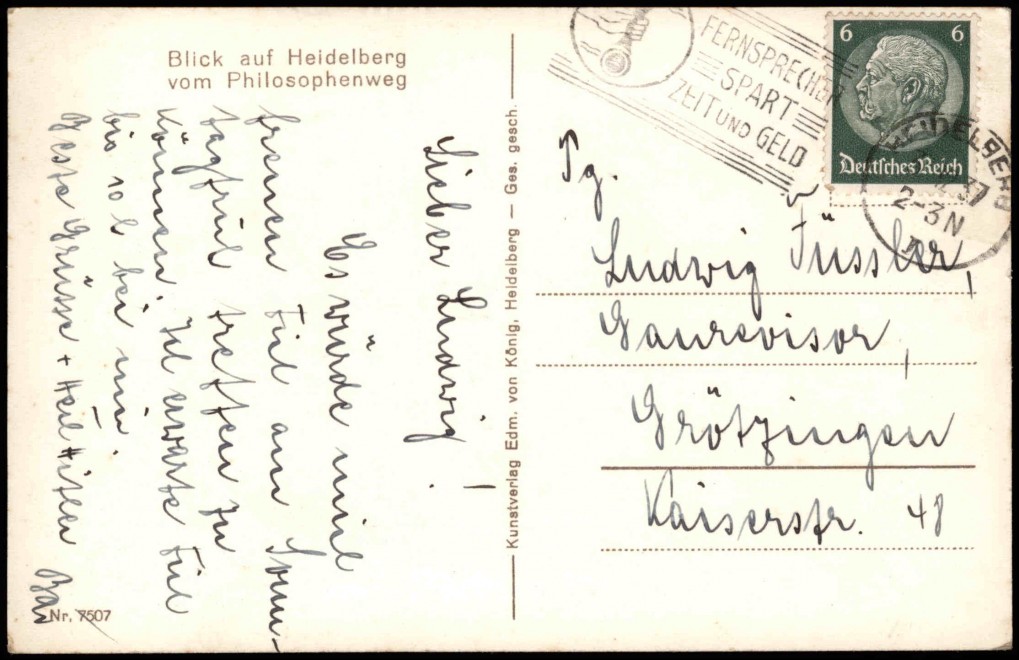 Blick auf Heidelberg
vom Philosophenweg
Lieber Ludwig!
Es würde mich
freuen Dich am Sonn-
tagfrüh treffen zu
können. Ich erwarte Dich
bis 10h bei mir.
Beste Grüsse + Heil Hitler
Nr. 7507
Kunstverlag Edm. von König, Heidelberg — Ges. gesch.
FERNSPRECHER
SPART
ZEIT UND GELD
6 6
Deutsches Reich
HEIDELBERG
37
2-3 N
Pg.
Ludwig Füssler,
Gaurevisor,
Grötzingen
Kaiserstr. 48